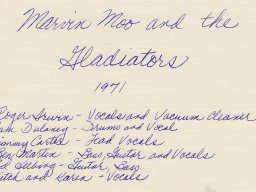 Marvin Moo and the
Gladiators
1971
Roger Irvin - Vocals and Vacuum Cleaner
Dulaney - Drums and Vocal
Carter - Lead Vocals
Martin - Bass, Guitar, and Vocals
- Guitar, Bass
and Karen - Vocals